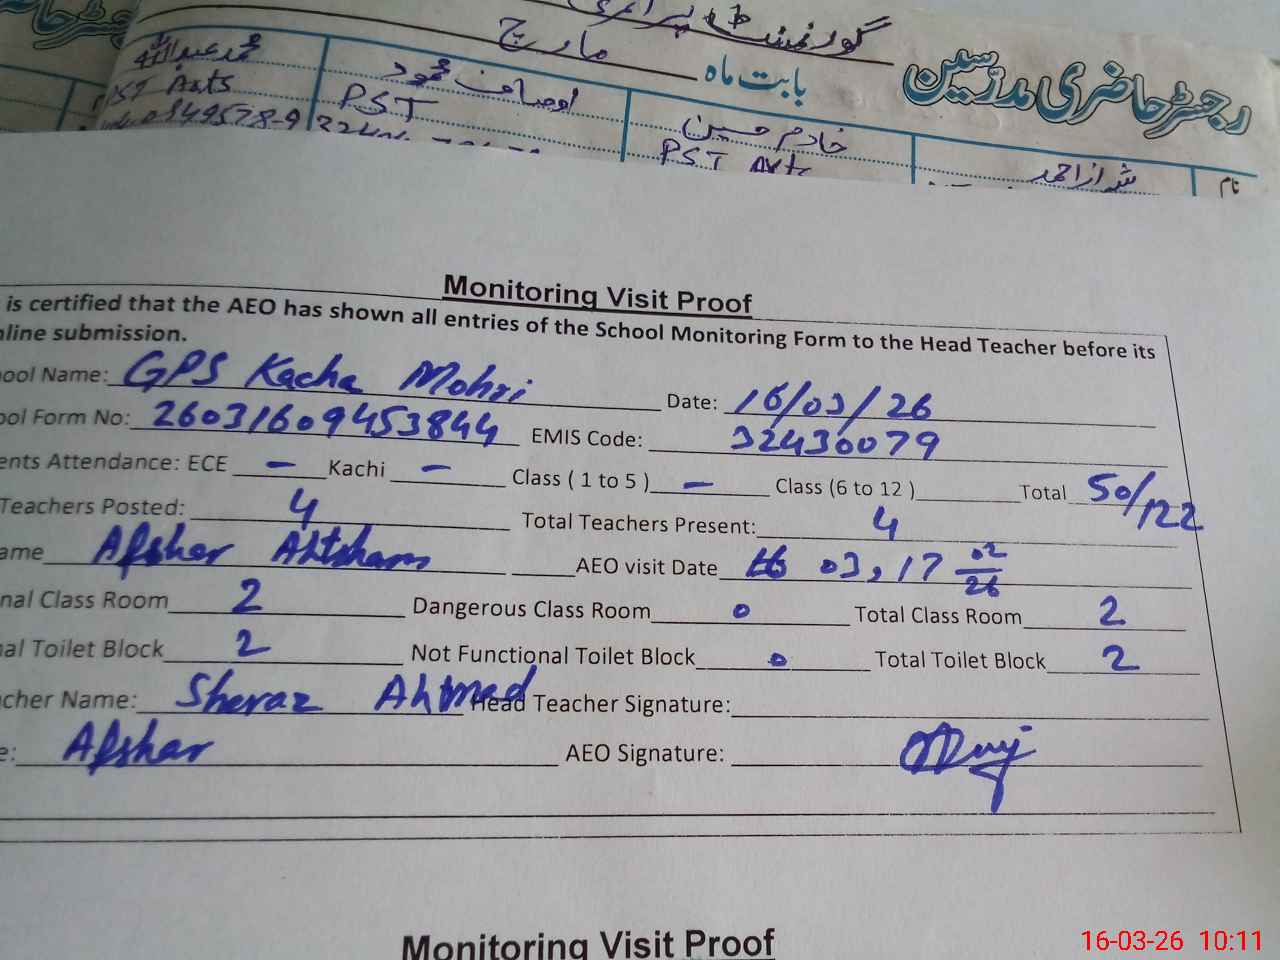 رجسٹر حاضری مدرسین
گورنمنٹ پرائمری
بابت ماہ مارچ
نام
شراز احمد
خادم حسین
PST Arts
اوصاف محمود
PST
محمد عبداللہ
PST Arts
Monitoring Visit Proof
is certified that the AEO has shown all entries of the School Monitoring Form to the Head Teacher before its
nline submission.
ool Name: GPS Kacha Mohri Date: 16/03/26
ool Form No: 26031609453844 EMIS Code: 32430079
ents Attendance: ECE - Kachi - Class ( 1 to 5 ) - Class (6 to 12 ) Total 50/122
Teachers Posted: 4 Total Teachers Present: 4
ame Afshar Ahtsham AEO visit Date 03, 17 02/26
nal Class Room 2 Dangerous Class Room 0 Total Class Room 2
nal Toilet Block 2 Not Functional Toilet Block 0 Total Toilet Block 2
cher Name: Sheraz Ahmad Head Teacher Signature:
e: Afshar AEO Signature:
Monitoring Visit Proof
16-03-26 10:11